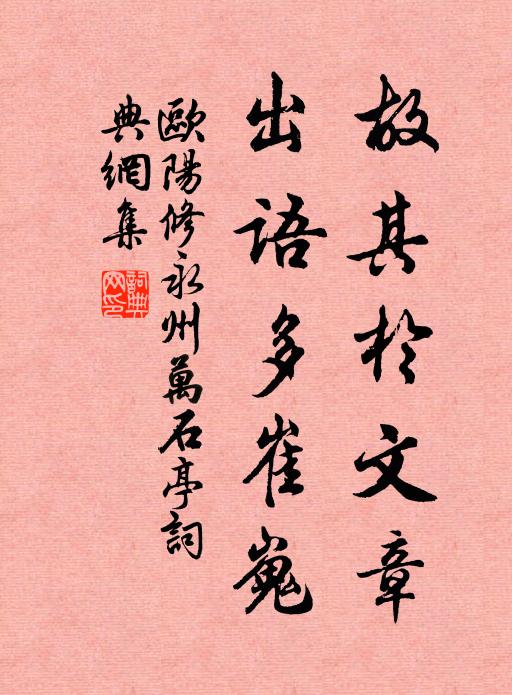 故其於文章
出語多崔嵬
歐陽修永州萬石亭詞
典網集
詞典
网印